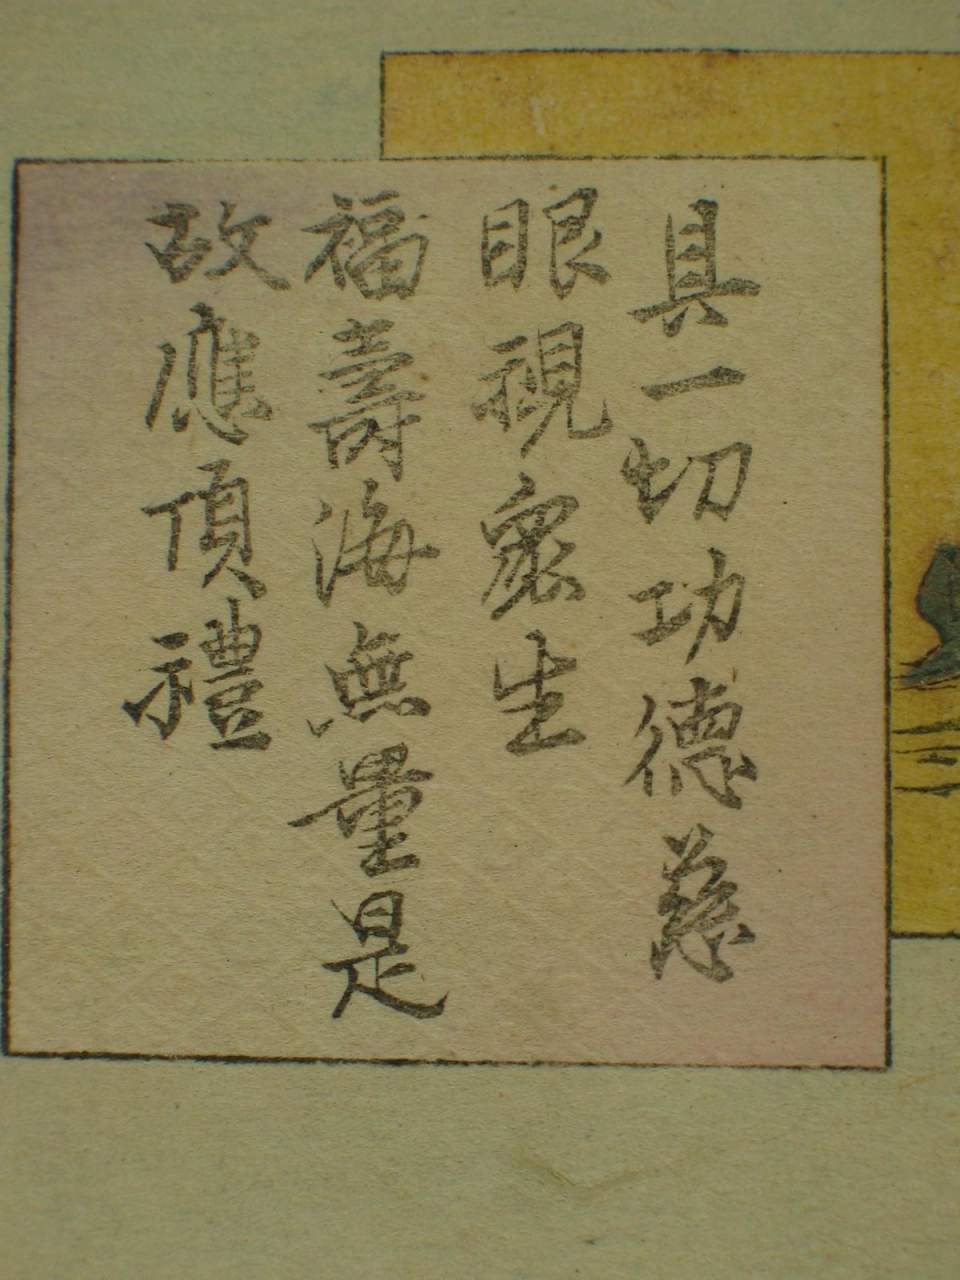 具一切功德慈
眼視衆生
福壽海無量是
故應頂禮